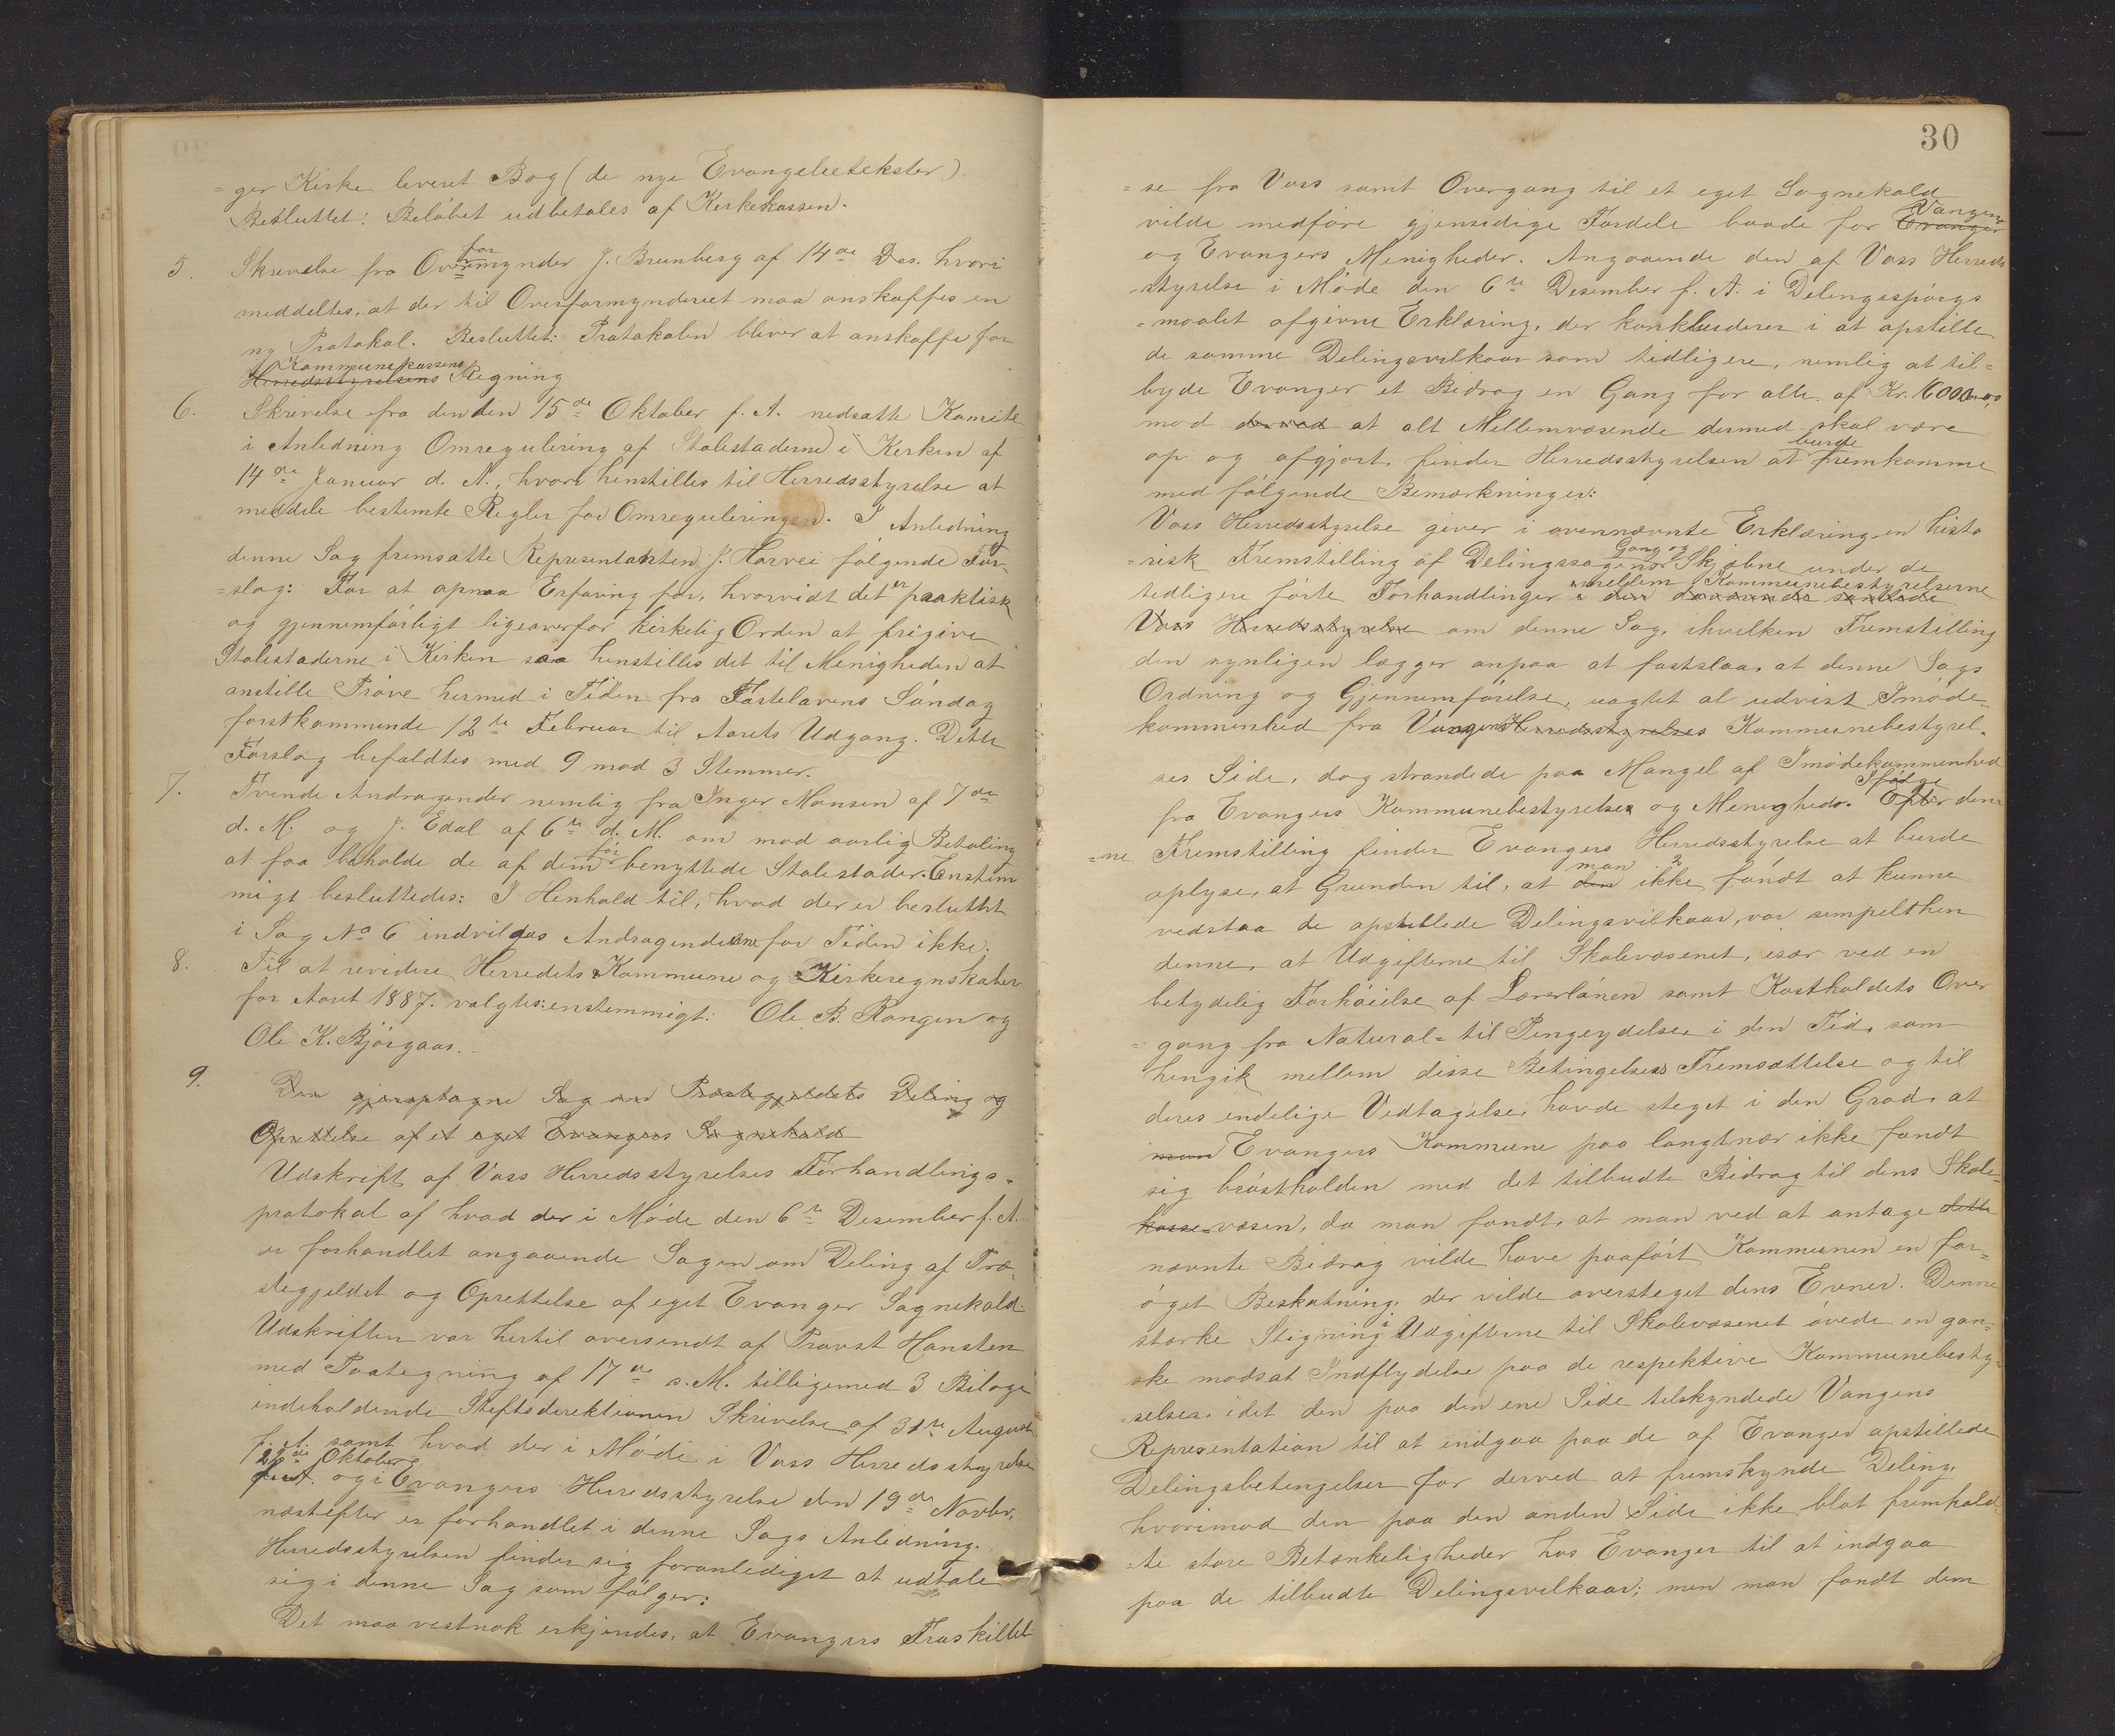 =ger Kirke leveret Bog (de nye Evangelietekster).
Besluttet: Beløbet udbetales af Kirkekassen.
5. Skrivelse fra Overformynder J. Brunborg af 14de Des. hvori
meddeltes, at der til Overformynderiet maa anskaffes en
ny Protokol. Besluttet: Protokolen bliver at anskaffe for
Kommunekassens
Herredsstyrelsens Regning
6. Skrivelse fra den den 15de Oktober f. A. nedsatte Komite
i Anledning Omregulering af Stolestaderne i Kirken af
14de Januar d. A., hvori henstilles til Herredsstyrelse at
meddele bestemte Regler for Omreguleringen. I Anledning
denne Sag fremsatte Representanten J. Horvei følgende For-
=slag: For at opnaa Erfaring for, hvorvidt det er praktisk
og gjennemførligt ligeoverfor kirkelig Orden at frigive
Stolestaderne i Kirken saa henstilles det til Menigheden at
anstille Prøve hermed i Tiden fra Fastelavens Søndag
førstkommende 12te Februar til Aarets Udgang. Dette
Forslag befaldtes med 9 mod 3 Stemmer.
7. Tvende Andragender nemlig fra Inger Monsen af 7de
d. M. og J. Edal af 6te d. M. om mod aarlig Betaling
at faa beholde de af dem før benyttede Stolestader. Enstem
migt besluttedes: I Henhold til, hvad der er besluttet
i Sag No 6 indvilges Andragenderne for Tiden ikke.
8. Til at revidere Herredets Kommune og Kirkeregnskaber
for Aaret 1887. valgtes enstemmigt: Ole B. Rongen og
Ole K. Bjørgaas.
9. Den gjenoptagne Sag om Præstegjeldets Deling og
Oprettelse af et eget Evangers Sognekald
Udskrift af Voss Herredsstyrelses Forhandlings-
protokol af hvad der i Møde den 6te Desember f. A.
er forhandlet angaaende Sagen om Deling af Præ-
stegjeldet og Oprettelse af eget Evanger Sognekald.
Udskriften var hertil oversendt af Provst Hansten
med Paategning af 17de s. M. tilligemed 3 Bilage
indeholdende Stiftsdirektionen Skrivelse af 31te August
f. A. samt hvad der i Møde i Voss Herredsstyrelse
Oktober
f. A. og i Evangers Herredsstyrelse den 19de Novbr,
næstefter er forhandlet i denne Sags Anledning.
Herredsstyrelsen finder sig foranlediget at udtale
sig i denne Sag som følger:
Det maa vistnok erkjendes, at Evangers Fraskillel-
30
=se fra Voss samt Overgang til et eget Sognekald
vilde medføre gjensidige Fordele baade for Evanger Vangens
og Evangers Menigheder. Angaaende den af Voss Herreds-
-styrelse i Møde den 6te Desember f. A. i Delingsspørgs
=maalet afgivne Erklæring, der konkluderer i at opstille
de samme Delingsvilkaar som tidligere, nemlig at til=
byde Evanger et Bidrag en Gang for alle af Kr. 16000,00,
mod derved at alt Mellemværende dermed skal være
op og afgjort, finder Herredsstyrelsen at burde fremkomme
med følgende Bemærkninger:
Voss Herredsstyrelse giver i ovennævnte Erklæring en histo
=risk Fremstilling af Delingssagens Gang og Skjæbne under de
tidligere førte Forhandlinger imellem Kommunebestyrelserne
Voss Herredsstyrelse om denne Sag, ihvilken Fremstilling
den synligen lægger anpaa at fastslaa, at denne Sags
Ordning og Gjennemførelse, uagtet al udvist Imøde-
kommenhed fra Vangens Herredsstyrelses Kommunebestyrel-
ses Side, dog strandede paa Mangel af Imødekommenhed
fra Evangers Kommunebestyrelses og Menigheds. Efter Ifølge den-
=ne Fremstilling finder Evangers Herredsstyrelse at burde
oplyse, at Grunden til, at den man ikke fandt at kunne
vedstaa de opstillede Delingsvilkaar, var simpelthen
denne, at Udgifterne til Skolevæsenet, især ved en
betydelig Forhøielse af Lærerlønen samt Kostholdets Over
=gang fra Natural= til Pengeydelse, i den Tid, som
hengik mellem disse Betingelsers Fremsættelse og til
deres endelige Vedtagelse, havde steget i den Grad, at
man Evangers Kommune paa langtnær ikke fandt
sig brøstholden med det tilbudte Bidrag til dens Skole-
kasse væsen, da man fandt, at man ved at antage dette
nævnte Bidrag vilde have paaført Kommunen en for=
øget Beskatning, der vilde oversteget dens Evner. Denne
stærke Stigning i Udgifterne til Skolevæsenet øvede en gan=
ske modsat Indflydelse paa de respektive Kommunebesty=
=relser, idet den paa den ene Side tilskyndede Vangens
Representation til at indgaa paa de af Evanger opstillede
Delingsbetingelser for derved at fremskynde Deling,
hvorimod den paa den anden Side ikke blot fremkald-
=te store Betænkeligheder hos Evanger til at indgaa
paa de tilbudte Delingsvilkaar; men man fandt dem